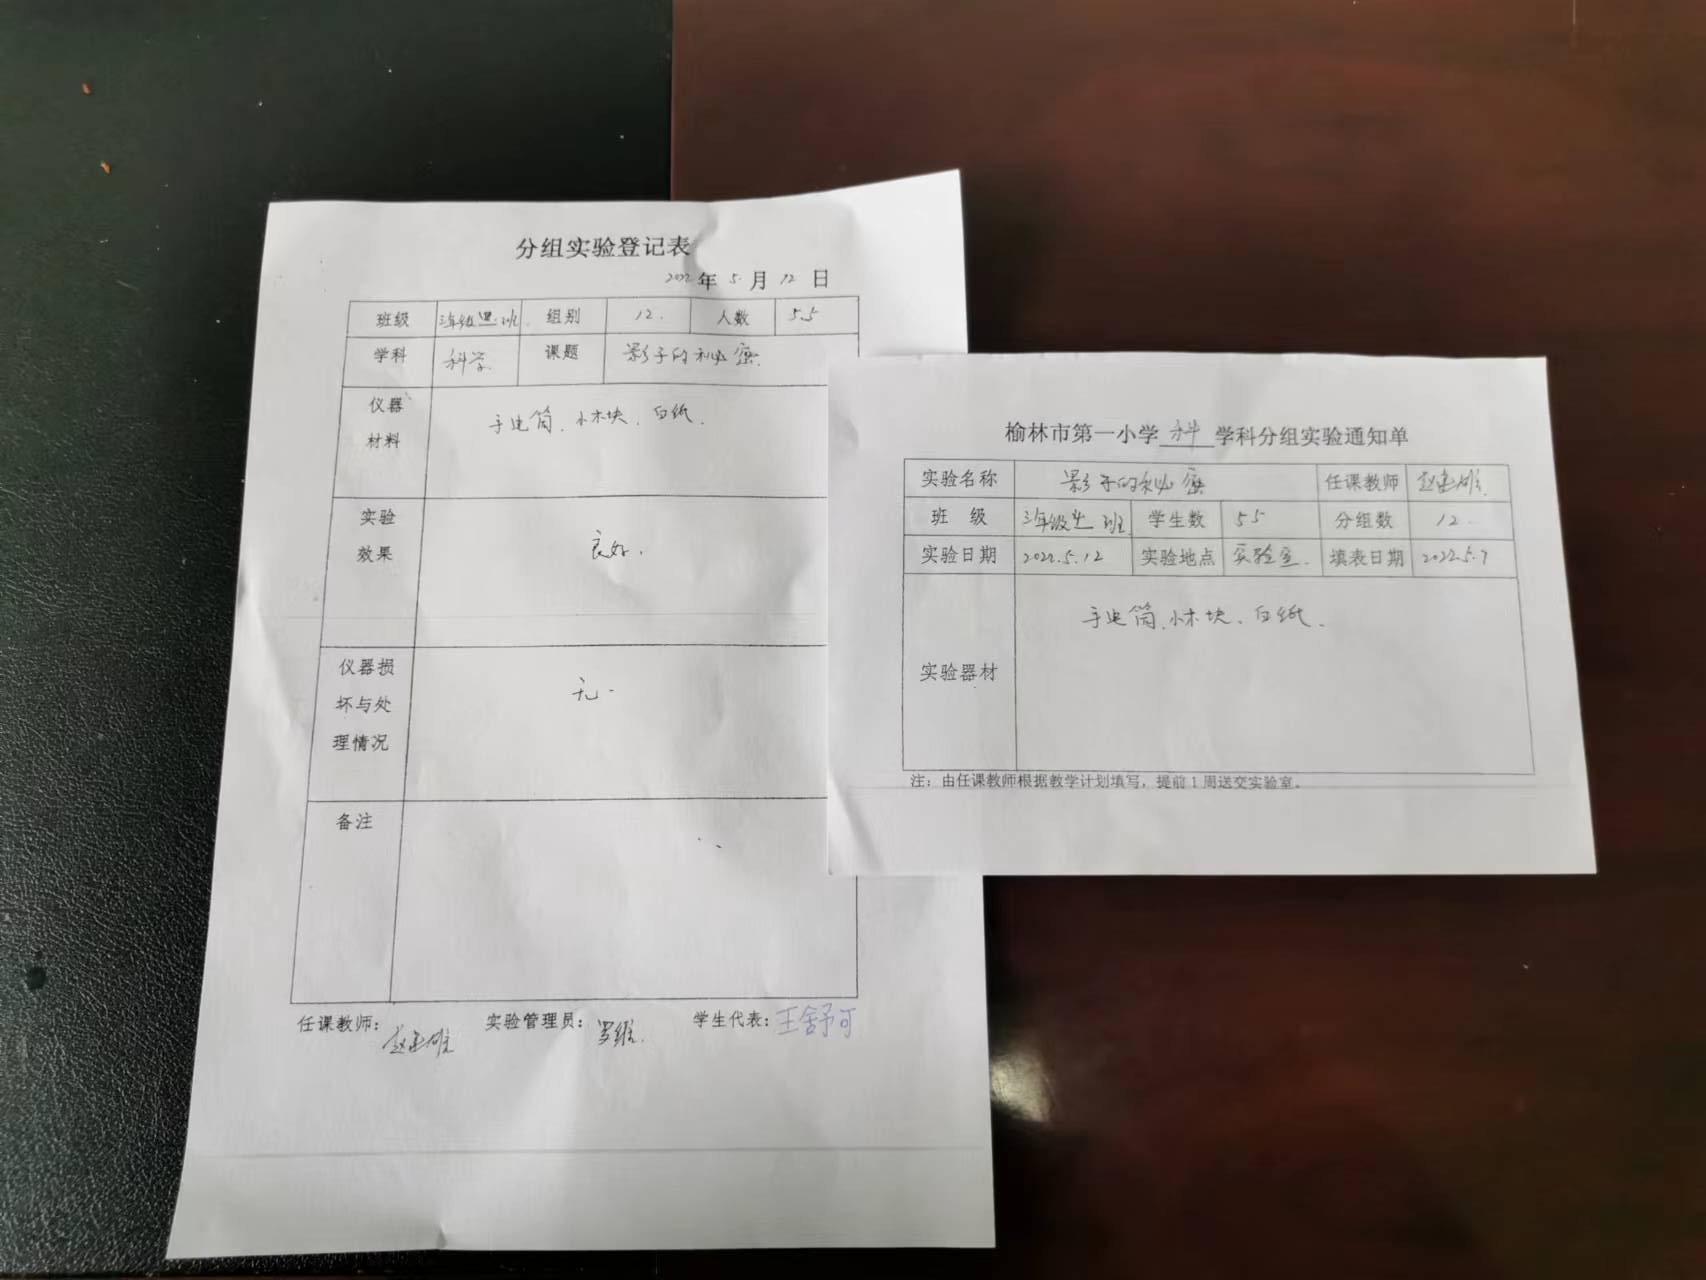 分组实验登记表
2022年5月12日
班级 三年级 班 组别 12. 人数 55
学科 科学. 课题 影子的秘密.
仪器材料 手电筒、小木块、白纸.
实验效果 良好.
仪器损坏与处理情况 无.
备注
任课教师: 实验管理员: 罗维. 学生代表: 王舒可
榆林市第一小学 科 学科分组实验通知单
实验名称 影子的秘密 任课教师
班 级 三年级 班 学生数 55 分组数 12.
实验日期 2022.5.12 实验地点 实验室. 填表日期 2022.5.7
实验器材 手电筒、小木块、白纸.
注：由任课教师根据教学计划填写，提前1周送交实验室。